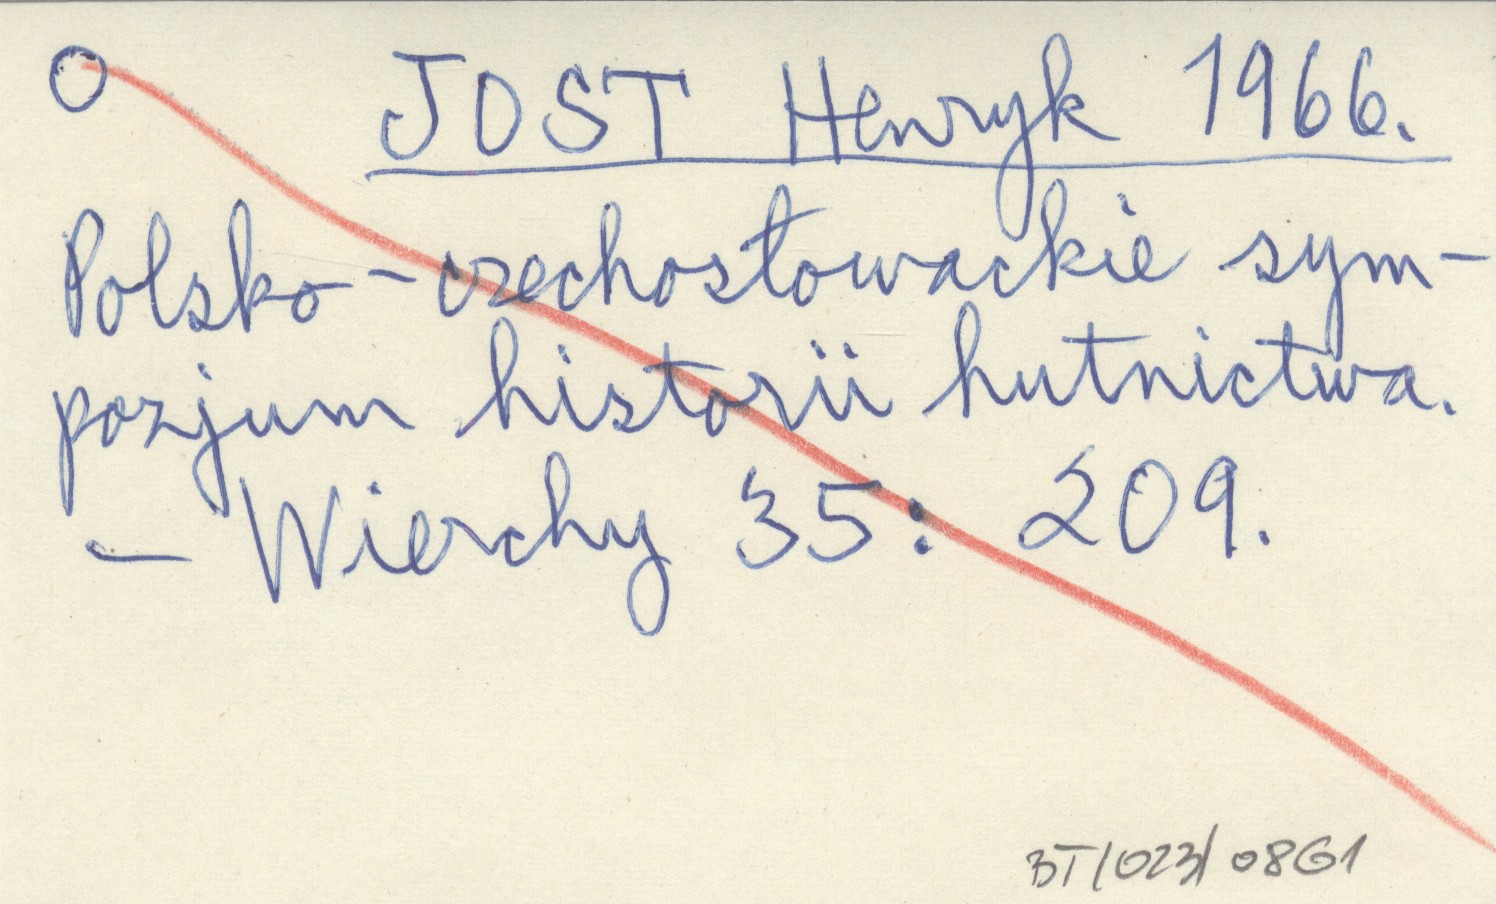 O JOST Henryk 1966.
Polsko-czechosłowackie sym-
pozjum historii hutnictwa.
- Wierchy 35: 209.
BT/023/0861